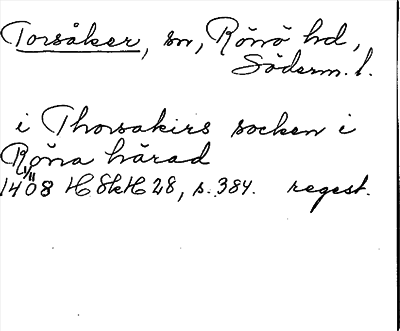 Torsåker, sn, Rönö hd,
Söderm. l.
i Thorsakirs socken i
Röna härad
1408 1/11 HSkH 28, s. 384. regest.